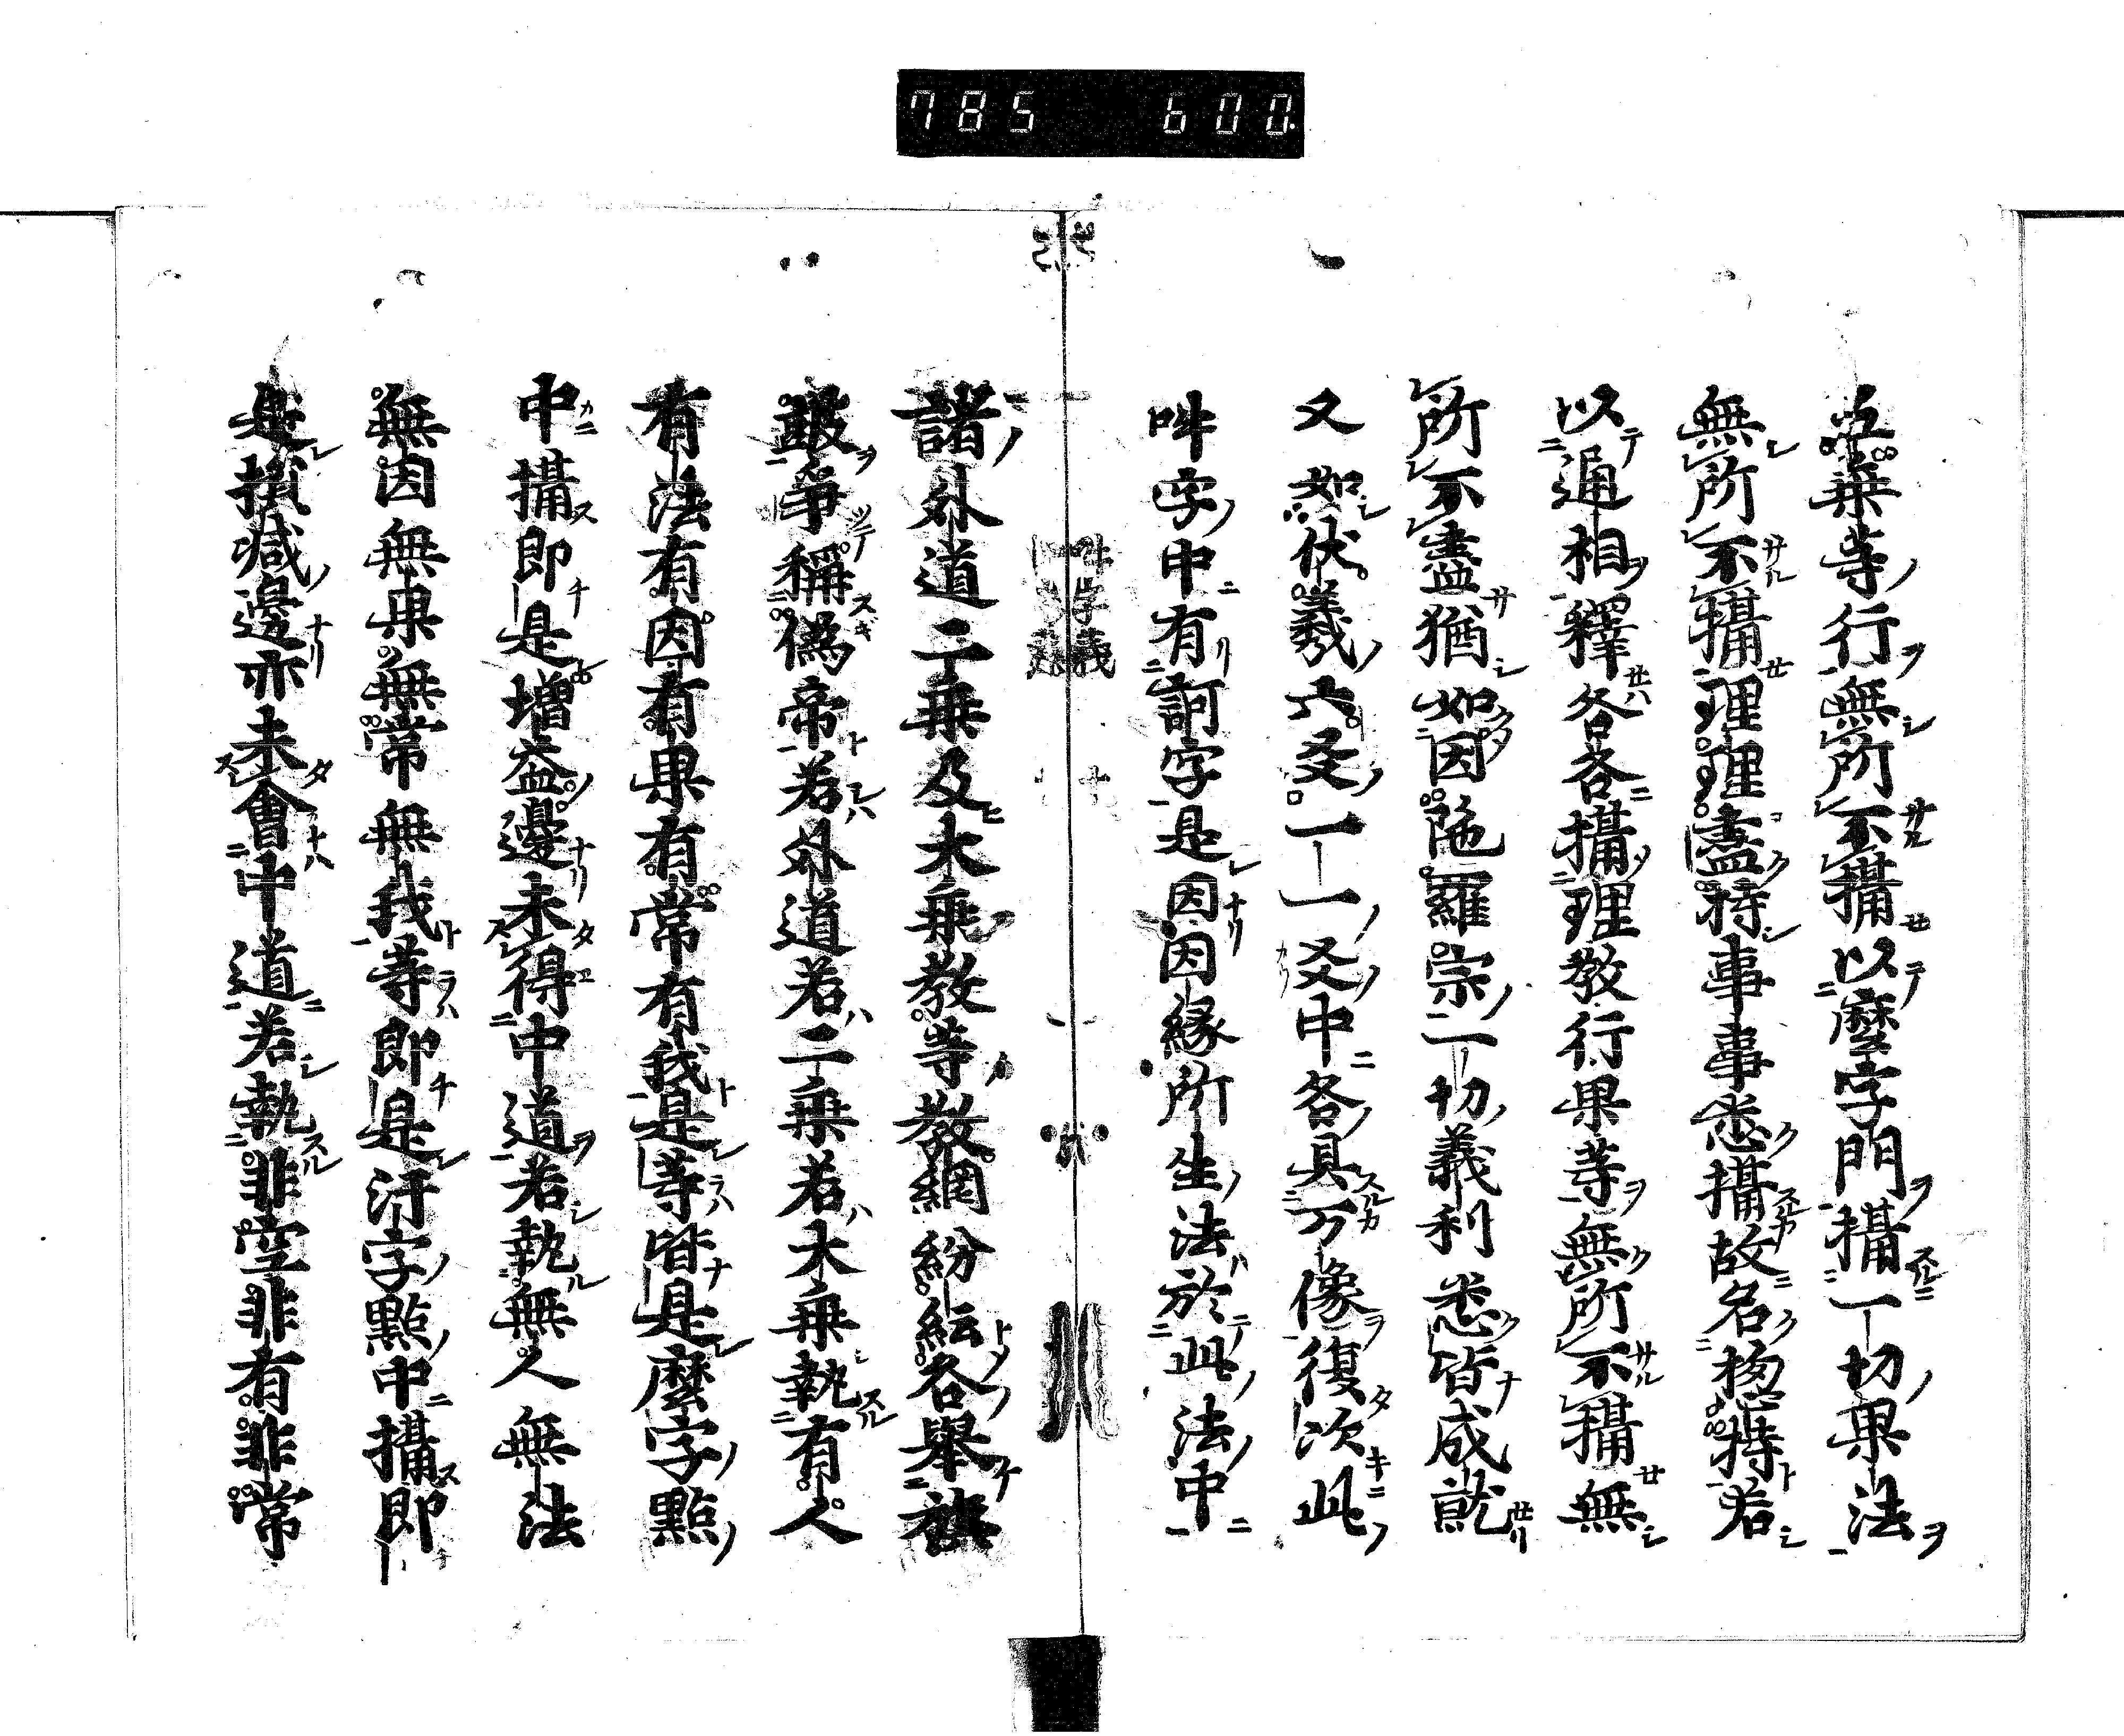 785 600.
五乘等行無所不攝以麼字門攝一切果法
無所不攝理理盡持事事悉攝故名揔持若
以通相釋各各攝理教行果等無所不攝無
所不盡猶如因陁羅宗一切義利悉皆成就
又如伏羲六爻一一爻中各具万像復次此
吽字中有訶字是因因緣所生法於此法中
吽字義
十
諸外道二乘及大乘教等教網紛紜各舉旗
皷爭稱偽帝若外道若二乘若大乘執有人
有法有因有果有常有我是等皆是麼字點
中攝即是增益邊未得中道若執無人無法
無因無果無常無我等即是汙字點中攝即
是損減邊亦未會中道若執非空非有非常